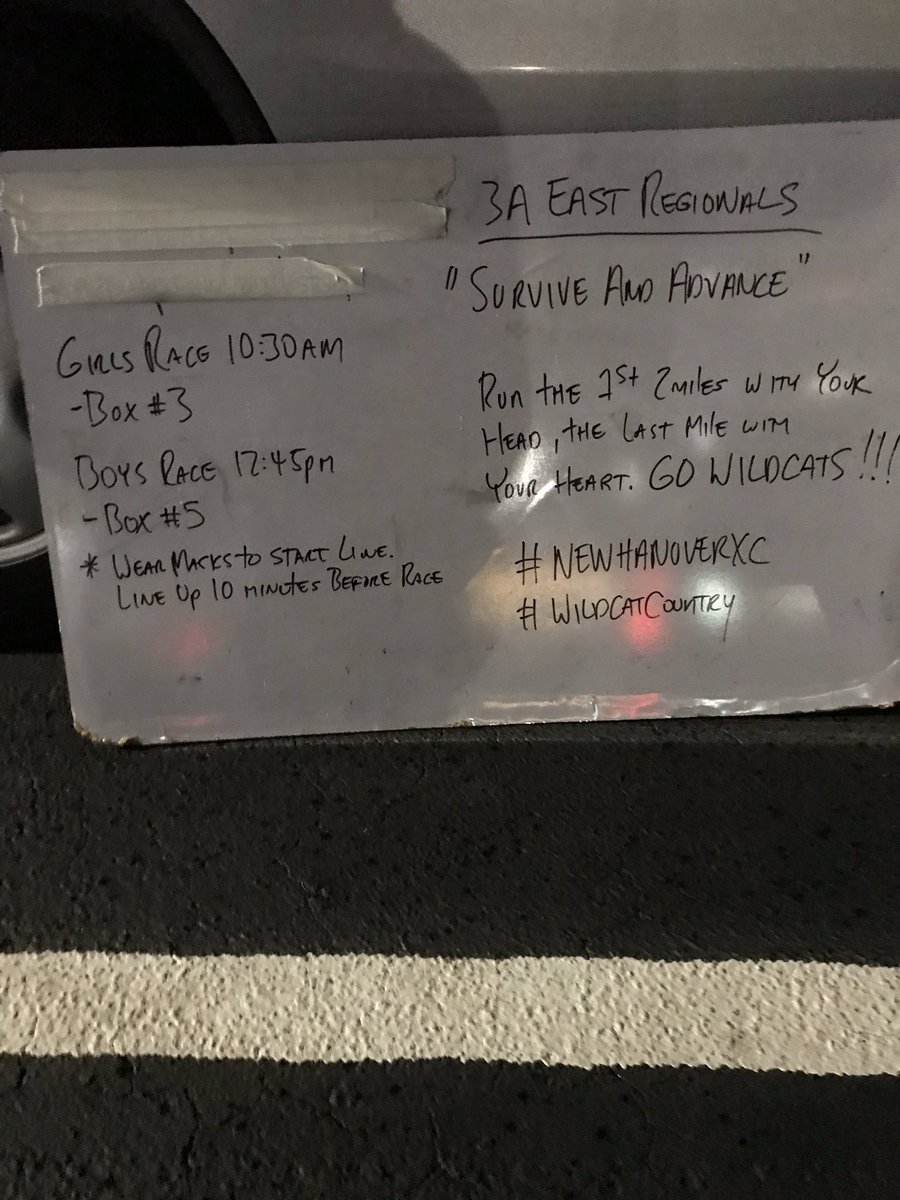 3A EAST REGIONALS
"SURVIVE AND ADVANCE"
GIRLS RACE 10:30AM
-BOX #3
BOYS RACE 12:45pm
-BOX #5
* WEAR MASKS TO START LINE.
LINE UP 10 MINUTES BEFORE RACE
RUN THE 1st 2 miles WITH YOUR
HEAD, THE LAST MILE WITH
YOUR HEART. GO WILDCATS!!!
#NEWHANOVERXC
#WILDCATCOUNTRY